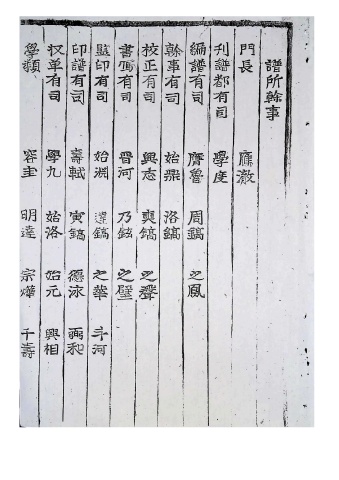 譜所幹事
門長 應澈
刋譜都有司 學度
編譜有司 膺魯 周鎬 之鳳
幹事有司 始鼎 洛鎬
校正有司 興志 奭鎬 之聲
書寫有司 晋河 乃鉉 之璧
監印有司 始淵 達鎬 之華 斗河
印譜有司 壽軾 寅鎬 德泳 雨和
收單有司 學九 始洛 始元 興相
學顯 容圭 明達 宗燁 千壽